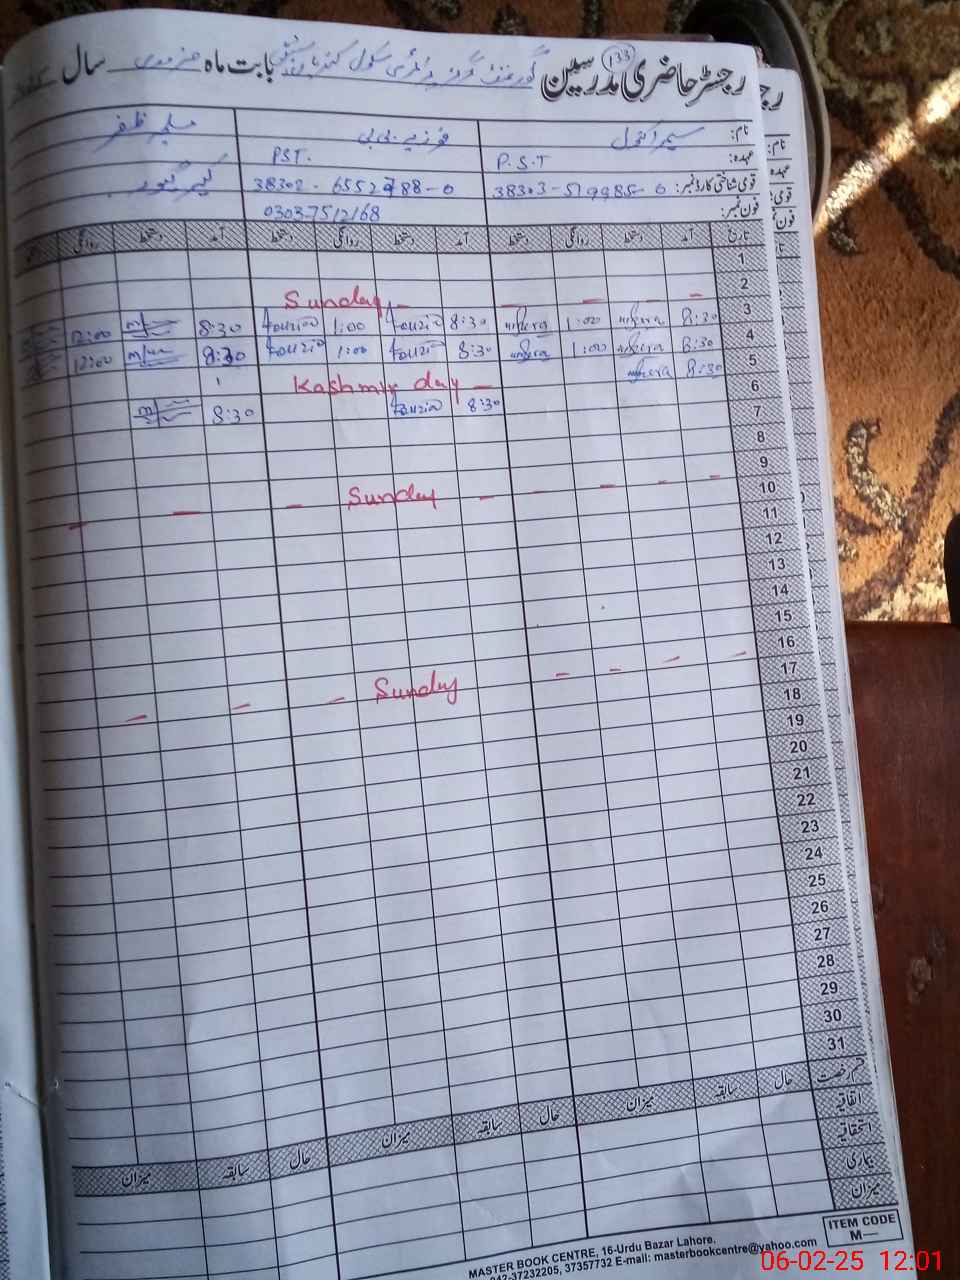 رجسٹر حاضری مدرسین 133 گورنمنٹ گرلز پرائمری سکول بابت ماہ سال
نام: فوزیہ بی بی
عہدہ: P.S.T P.S.T.
قومی شناختی کارڈ نمبر: 38302-6552788-0
فون نمبر: 0303-7512168
تاریخ آمد دستخط روانگی دستخط آمد دستخط روانگی دستخط آمد دستخط روانگی
1
2 Sunday
3 8:30 1:00 8:30 Fouzia 1:00 Fouzia 8:30 12:00
4 8:30 1:00 8:30 Fouzia 1:00 Fouzia 8:30 12:00
5 8:30 Kashmir day
6 8:30 Fouzia 8:30
7
8
9 Sunday
10
11
12
13
14
15
16 Sunday
17
18
19
20
21
22
23
24
25
26
27
28
29
30
31
قسم رخصت حال سابقہ میزان حال سابقہ میزان حال سابقہ میزان
اتفاقیہ
استحقاقیہ
بیماری
میزان
ITEM CODE
M—
MASTER BOOK CENTRE, 16-Urdu Bazar Lahore.
042-37232205, 37357732 E-mail: masterbookcentre@yahoo.com
06-02-25 12:01